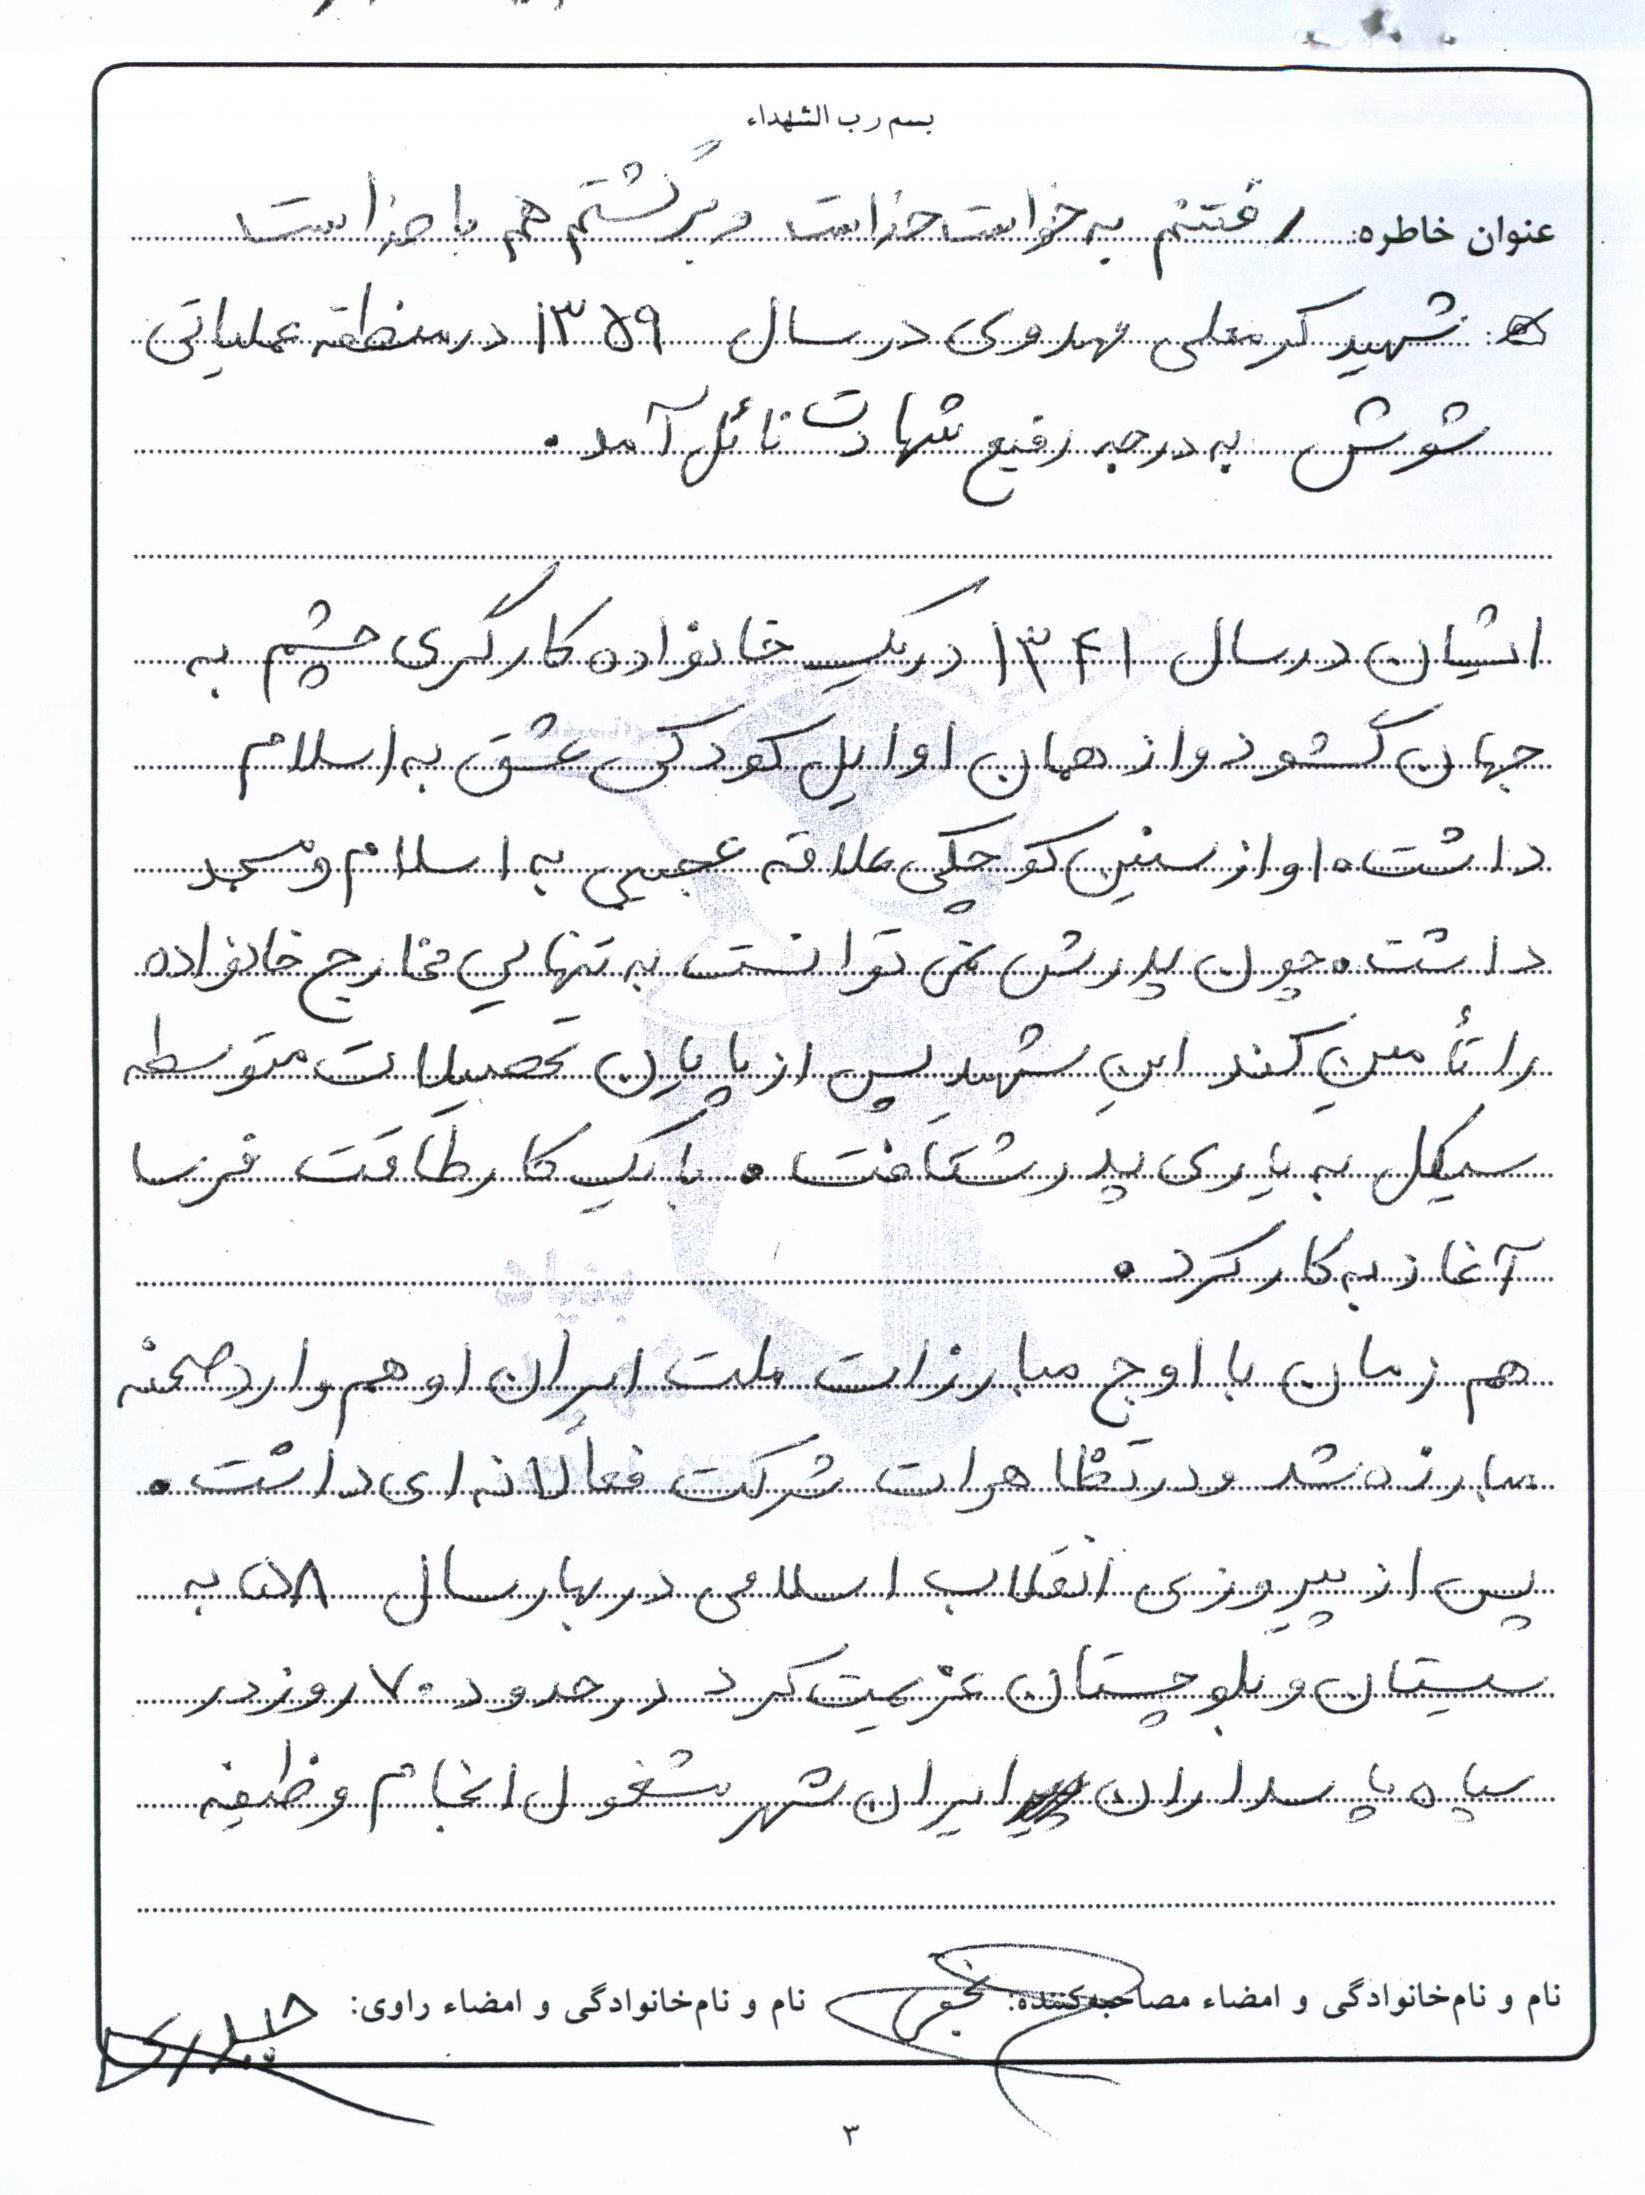 بسم رب الشهداء
عنوان خاطره: رفتنم به خواست خداست و برگشتم هم با خداست
شهید کرمعلی مهدوی در سال ۱۳۵۹ در منطقه عملیاتی
شوش به درجه رفیع شهادت نائل آمد.
ایشان در سال ۱۳۴۱ در یک خانواده کارگری چشم به
جهان گشود و از همان اوایل کودکی عشق به اسلام
داشت. او از سنین کوچکی علاقه عجیبی به اسلام و مسجد
داشت. چون پدرش نمی توانست به تنهایی مخارج خانواده
را تأمین کند این شهید پس از پایان تحصیلات متوسطه
سیکل به یاری پدر شتافت. با یک کار طاقت فرسا
آغاز به کار کرد.
هم زمان با اوج مبارزات ملت ایران او هم وارد صحنه
مبارزه شد و در تظاهرات شرکت فعالانه ای داشت.
پس از پیروزی انقلاب اسلامی در بهار سال ۵۸ به
سیستان و بلوچستان عزیمت کرد در حدود ۷۰ روز در
سپاه پاسداران ایران شهر مشغول انجام وظیفه
نام و نام‌خانوادگی و امضاء مصاحبه‌کننده: نام و نام‌خانوادگی و امضاء راوی:
۳